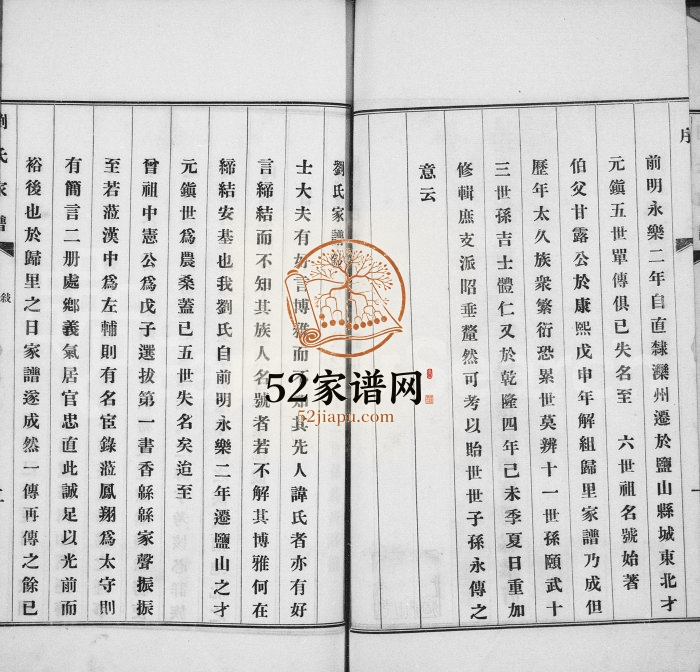 序
前明永樂二年自直隸灤州遷於鹽山縣城東北才
元鎭五世單傳俱已失名至 六世祖名號始著
伯父甘露公於康熙戊申年解組歸里家譜乃成但
歷年太久族衆繁衍恐累世莫辨十一世孫頤武十
三世孫吉士體仁又於乾隆四年己未季夏日重加
修輯庶支派昭垂釐然可考以貽世世子孫永傳之
意云
劉氏家譜敘
士大夫有好言博雅而不知其先人諱氏者亦有好
言締結而不知其族人名號者若不解其博雅何在
締結安基也我劉氏自前明永樂二年遷鹽山之才
元鎭世爲農桑蓋已五世失名矣迨至
曾祖中憲公爲戊子選拔第一書香緜緜家聲振振
至若蒞漢中爲左輔則有名宦錄蒞鳳翔爲太守則
有簡言二册處鄉義氣居官忠直此誠足以光前而
裕後也於歸里之日家譜遂成然一傳再傳之餘已
劉氏家譜
敘
52家谱网
52jiapu.com